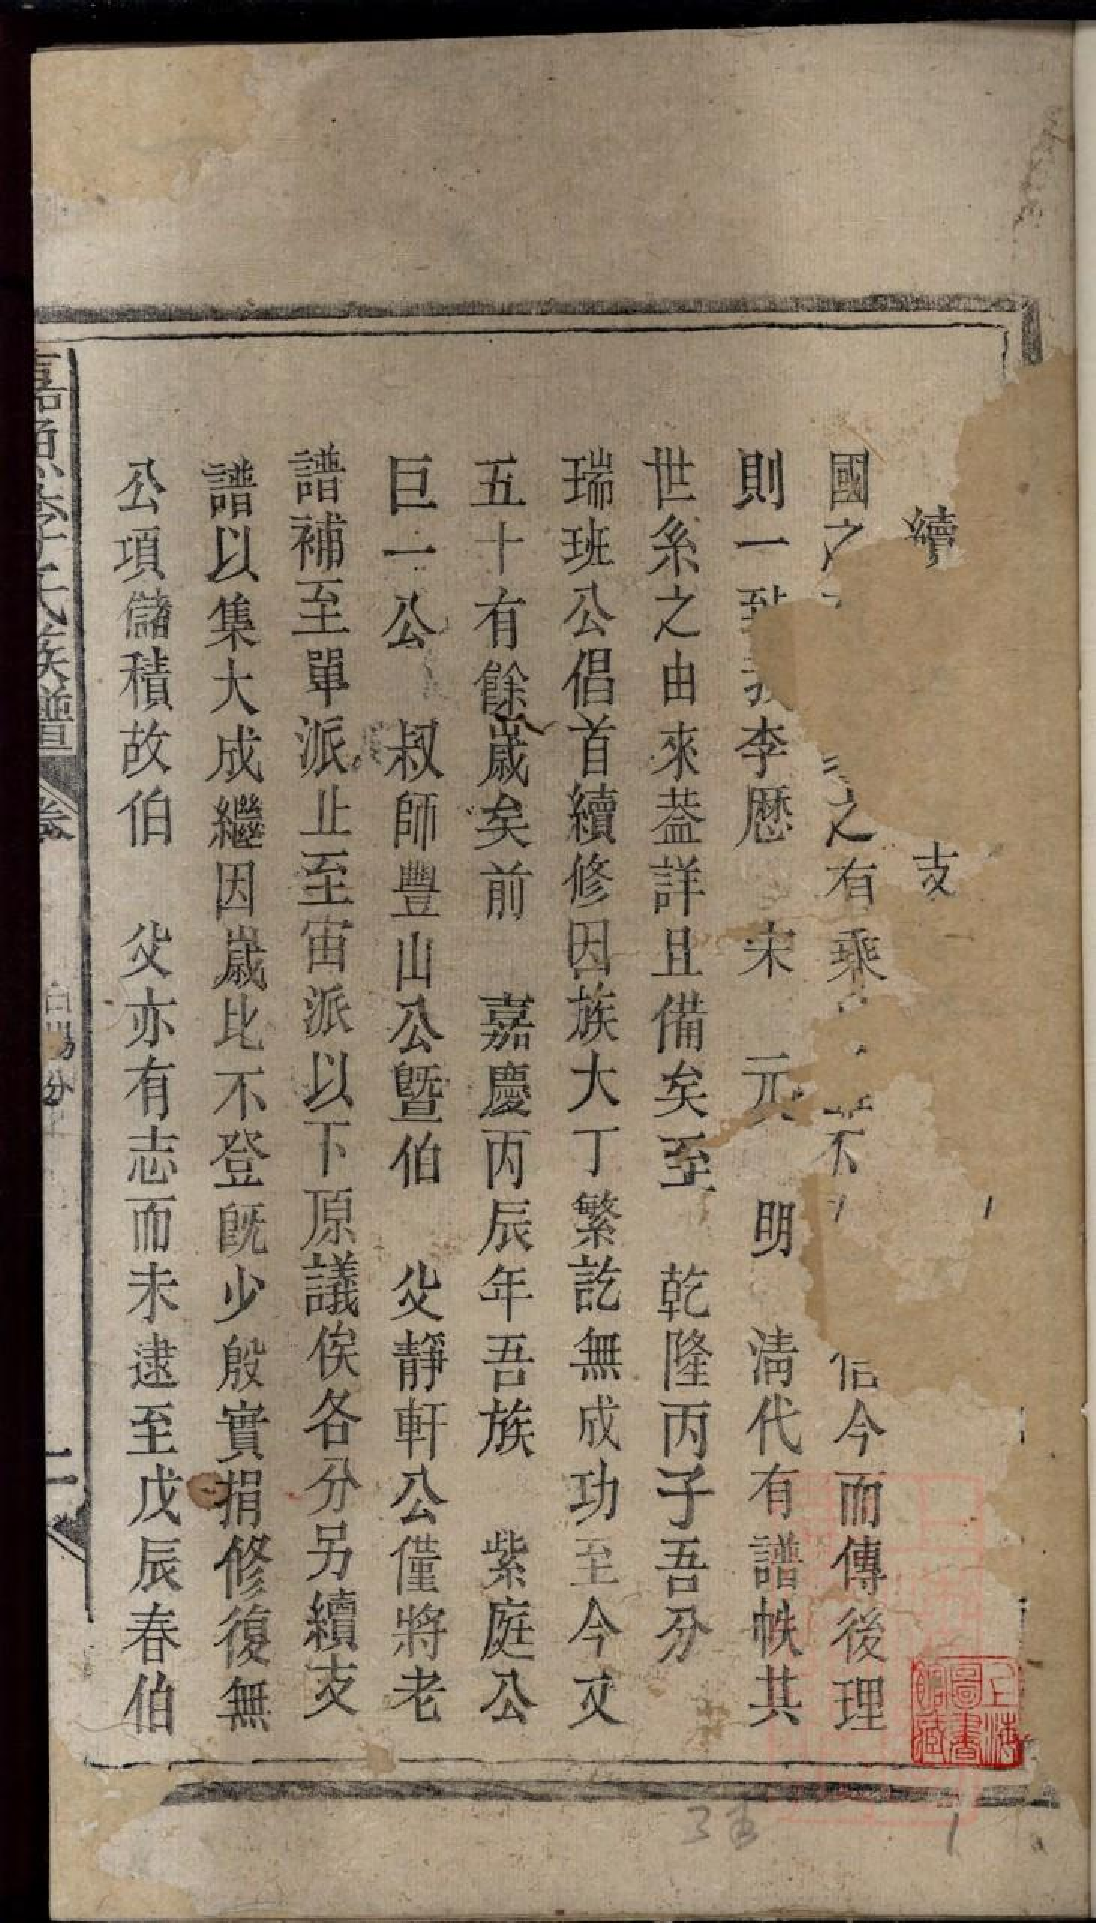 續 支
國之 之有乘 不 信今而傳後理
則一致我李歷 宋 元 明 清代有譜帙其
世系之由來益詳且備矣至 乾隆丙子吾分
瑞班公倡首續修因族大丁繁訖無成功至今又
五十有餘歲矣前 嘉慶丙辰年吾族 紫庭公
巨一公 叔師豐山公暨伯 父靜軒公僅將老
譜補至單派止至宙派以下原議俟各分另續支
譜以集大成繼因歲比不登旣少殷實捐修復無
公項儲積故伯 父亦有志而未逮至戊辰春伯
嘉魚李氏族譜 卷 白湯分 二
上海圖書館藏